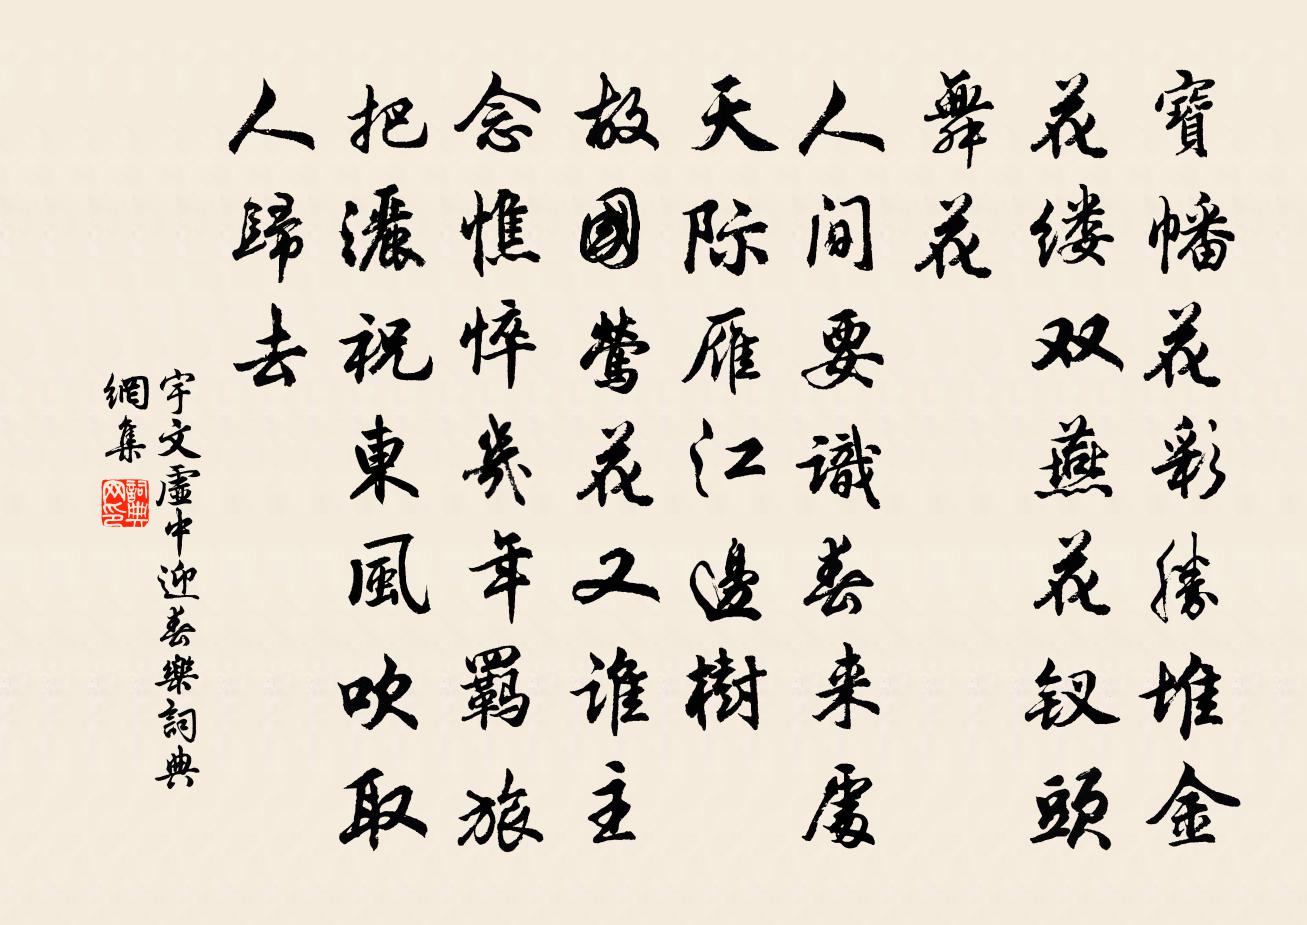 寶幡花彩勝堆金
花缕双燕花钗頭
舞花
人间要識春来處
天际雁江邊樹
故國鶯花又谁主
念憔悴幾年羁旅
把灑祝東風吹取
人歸去
宇文虛中迎春樂詞典
網集
詞典
网